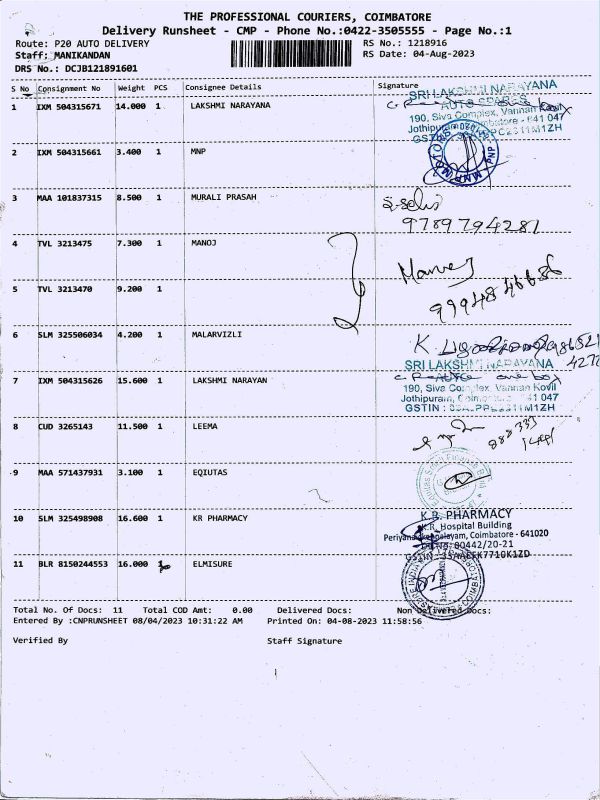 THE PROFESSIONAL COURIERS, COIMBATORE
Delivery Runsheet - CMP - Phone No.:0422-3505555 - Page No.:1
Route: P20 AUTO DELIVERY RS No.: 1218916
Staff: MANIKANDAN RS Date: 04-Aug-2023
DRS No.: DCJB121891601
S No Consignment No Weight PCS Consignee Details Signature
SRI LAKSHMI NARAYANA
1 IXM 504315671 14.000 1 LAKSHMI NARAYANA
AUTO SPARES
190, Siva Complex, Vannan Kovil
Jothipuram, Coimbatore - 641 047
2 IXM 504315661 3.400 1 MNP
3 MAA 101837315 8.500 1 MURALI PRASAH
9789794281
4 TVL 3213475 7.300 1 MANOJ
5 TVL 3213470 9.200 1
9994846686
6 SLM 325506034 4.200 1 MALARVIZLI
K
SRI LAKSHMI NARAYANA
7 IXM 504315626 15.600 1 LAKSHMI NARAYAN
190, Siva Complex, Vannan Kovil
Jothipuram, Coimbatore - 641 047
GSTIN :
8 CUD 3265143 11.500 1 LEEMA
9 MAA 571437931 3.100 1 EQIUTAS
10 SLM 325498908 16.600 1 KR PHARMACY
PHARMACY
K.R. Hospital Building
Periyanaickenpalayam, Coimbatore - 641020
11 BLR 8150244553 16.000 ELMISURE
Total No. Of Docs: 11 Total COD Amt: 0.00 Delivered Docs: Non Delivered Docs:
Entered By :CNPRUNSHEET 08/04/2023 10:31:22 AM Printed On: 04-08-2023 11:58:56
Verified By Staff Signature